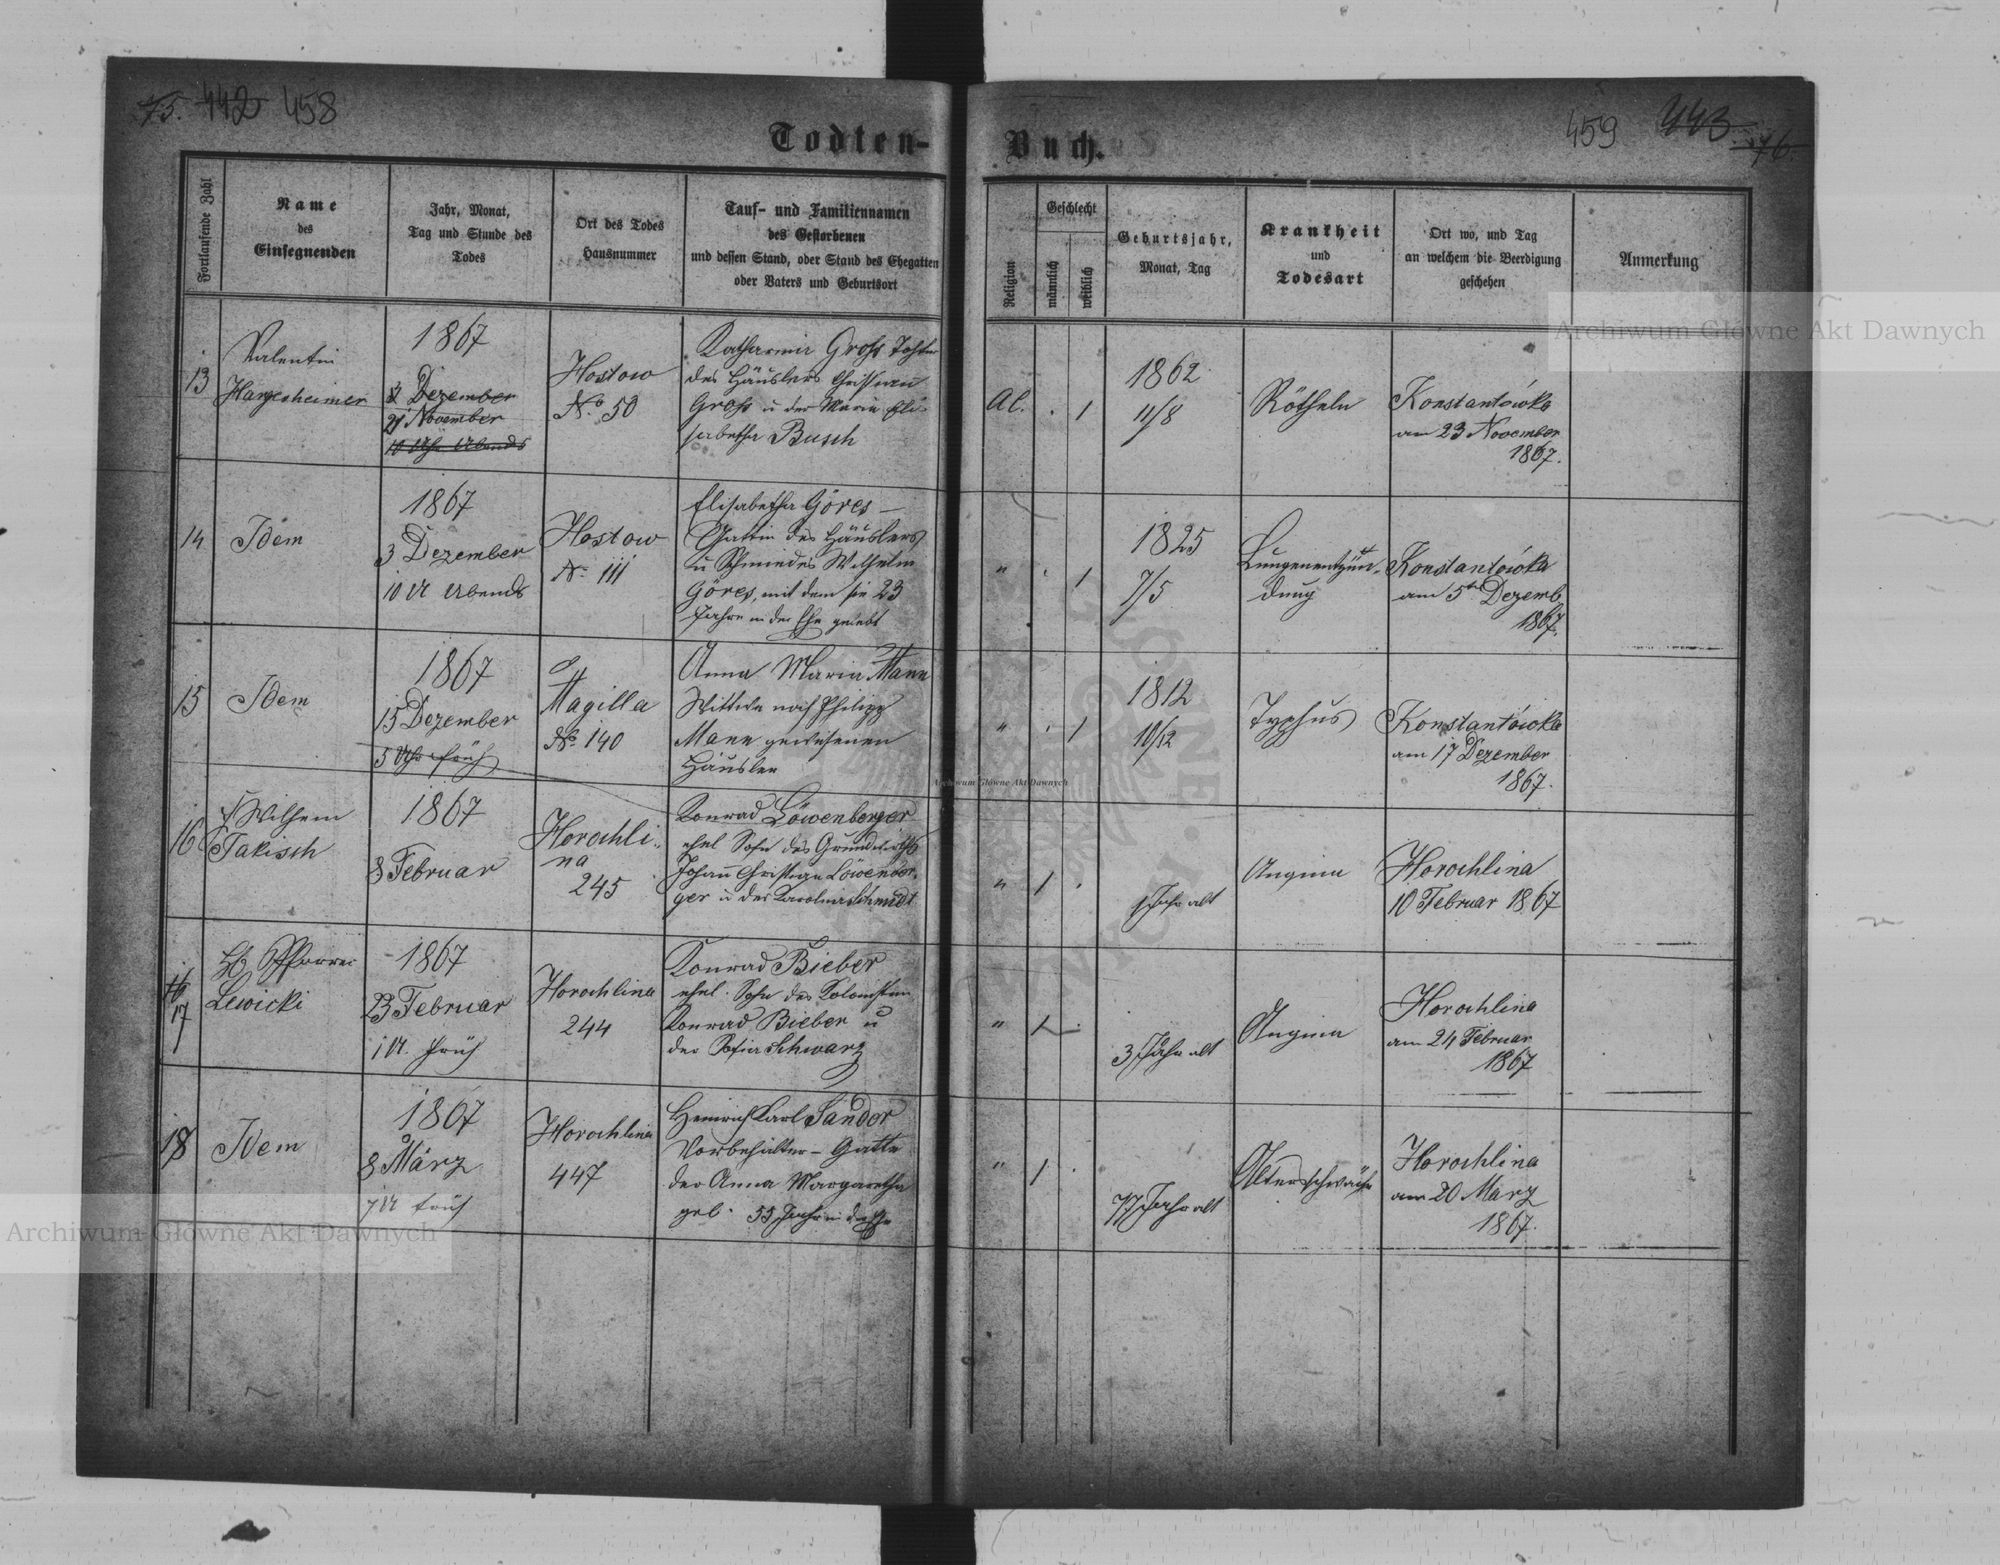 75. 442 458
Todten-
Buch.
459 443 76
Fortlaufende Zahl
Name
des
Einsegnenden
Jahr, Monat,
Tag und Stunde des
Todes
Ort des Todes
Hausnummer
Tauf- und Familiennamen
des Gestorbenen
und dessen Stand, oder Stand des Ehegatten
oder Vaters und Geburtsort
Religion
Geschlecht
männlich
weiblich
Geburtsjahr,
Monat, Tag
Krankheit
und
Todesart
Ort wo, und Tag
an welchem die Beerdigung
geschehen
Anmerkung
13
Valentin
Hargesheimer
1867
3 Dezember
21 November
10 Uhr Abends
Hostow
No. 50
Katharina Groß Tochter
des Häuslers Christian
Groß u der Maria Eli-
sabetha Busch
AC. . 1
1862
11/8
Rötheln
Konstantówka
am 23 November
1867.
14
Idem
1867
3 Dezember
10 U Abends
Hostow
No 111
Elisabetha Göres –
Gattin des Häuslers
u Schmiedes Wilhelm
Göres, mit dem sie 23
Jahre in der Ehe gelebt
" . 1
1825
7/5
Lungenentzün-
dung
Konstantówka
am 5ten Dezemb
1867.
15
Idem
1867
15 Dezember
5 Uhr früh
Mogilla
No. 140
Anna Maria Mann
Wittwe nach Philipp
Mann gewesenen
Häusler
" . 1
1812
10/12
Typhus
Konstantówka
am 17 Dezember
1867.
16
Wilhem
Jakisch
1867
8 Februar
Horochli-
na
245
Konrad Löwenberger
ehel Sohn des Grundwirths
Johann Christian Löwenber-
ger u der Karolina Schmidt
" 1 .
1 Jahr alt
Angina
Horochlina
10 Februar 1867
17
Pfarrer
Lewicki
1867
23 Februar
1 U. früh
Horochlina
244
Konrad Bieber
ehel. Sohn des Kolonisten
Konrad Bieber u
der Sofia Schwarz
" 1 .
3 Jahr alt
Angina
Horochlina
am 24 Februar
1867
18
Idem
1867
8 März
7 U früh
Horochlina
447
Heinrich Karl Sander
Vorbehälter – Gatte
der Anna Margaretha
geb. 55 Jahr in der Ehe
" 1 .
77 Jahr alt
Altersschwäche
Horochlina
am 20 März
1867.
Archiwum Główne Akt Dawnych
Archiwum Główne Akt Dawnych
Archiwum Główne Akt Dawnych